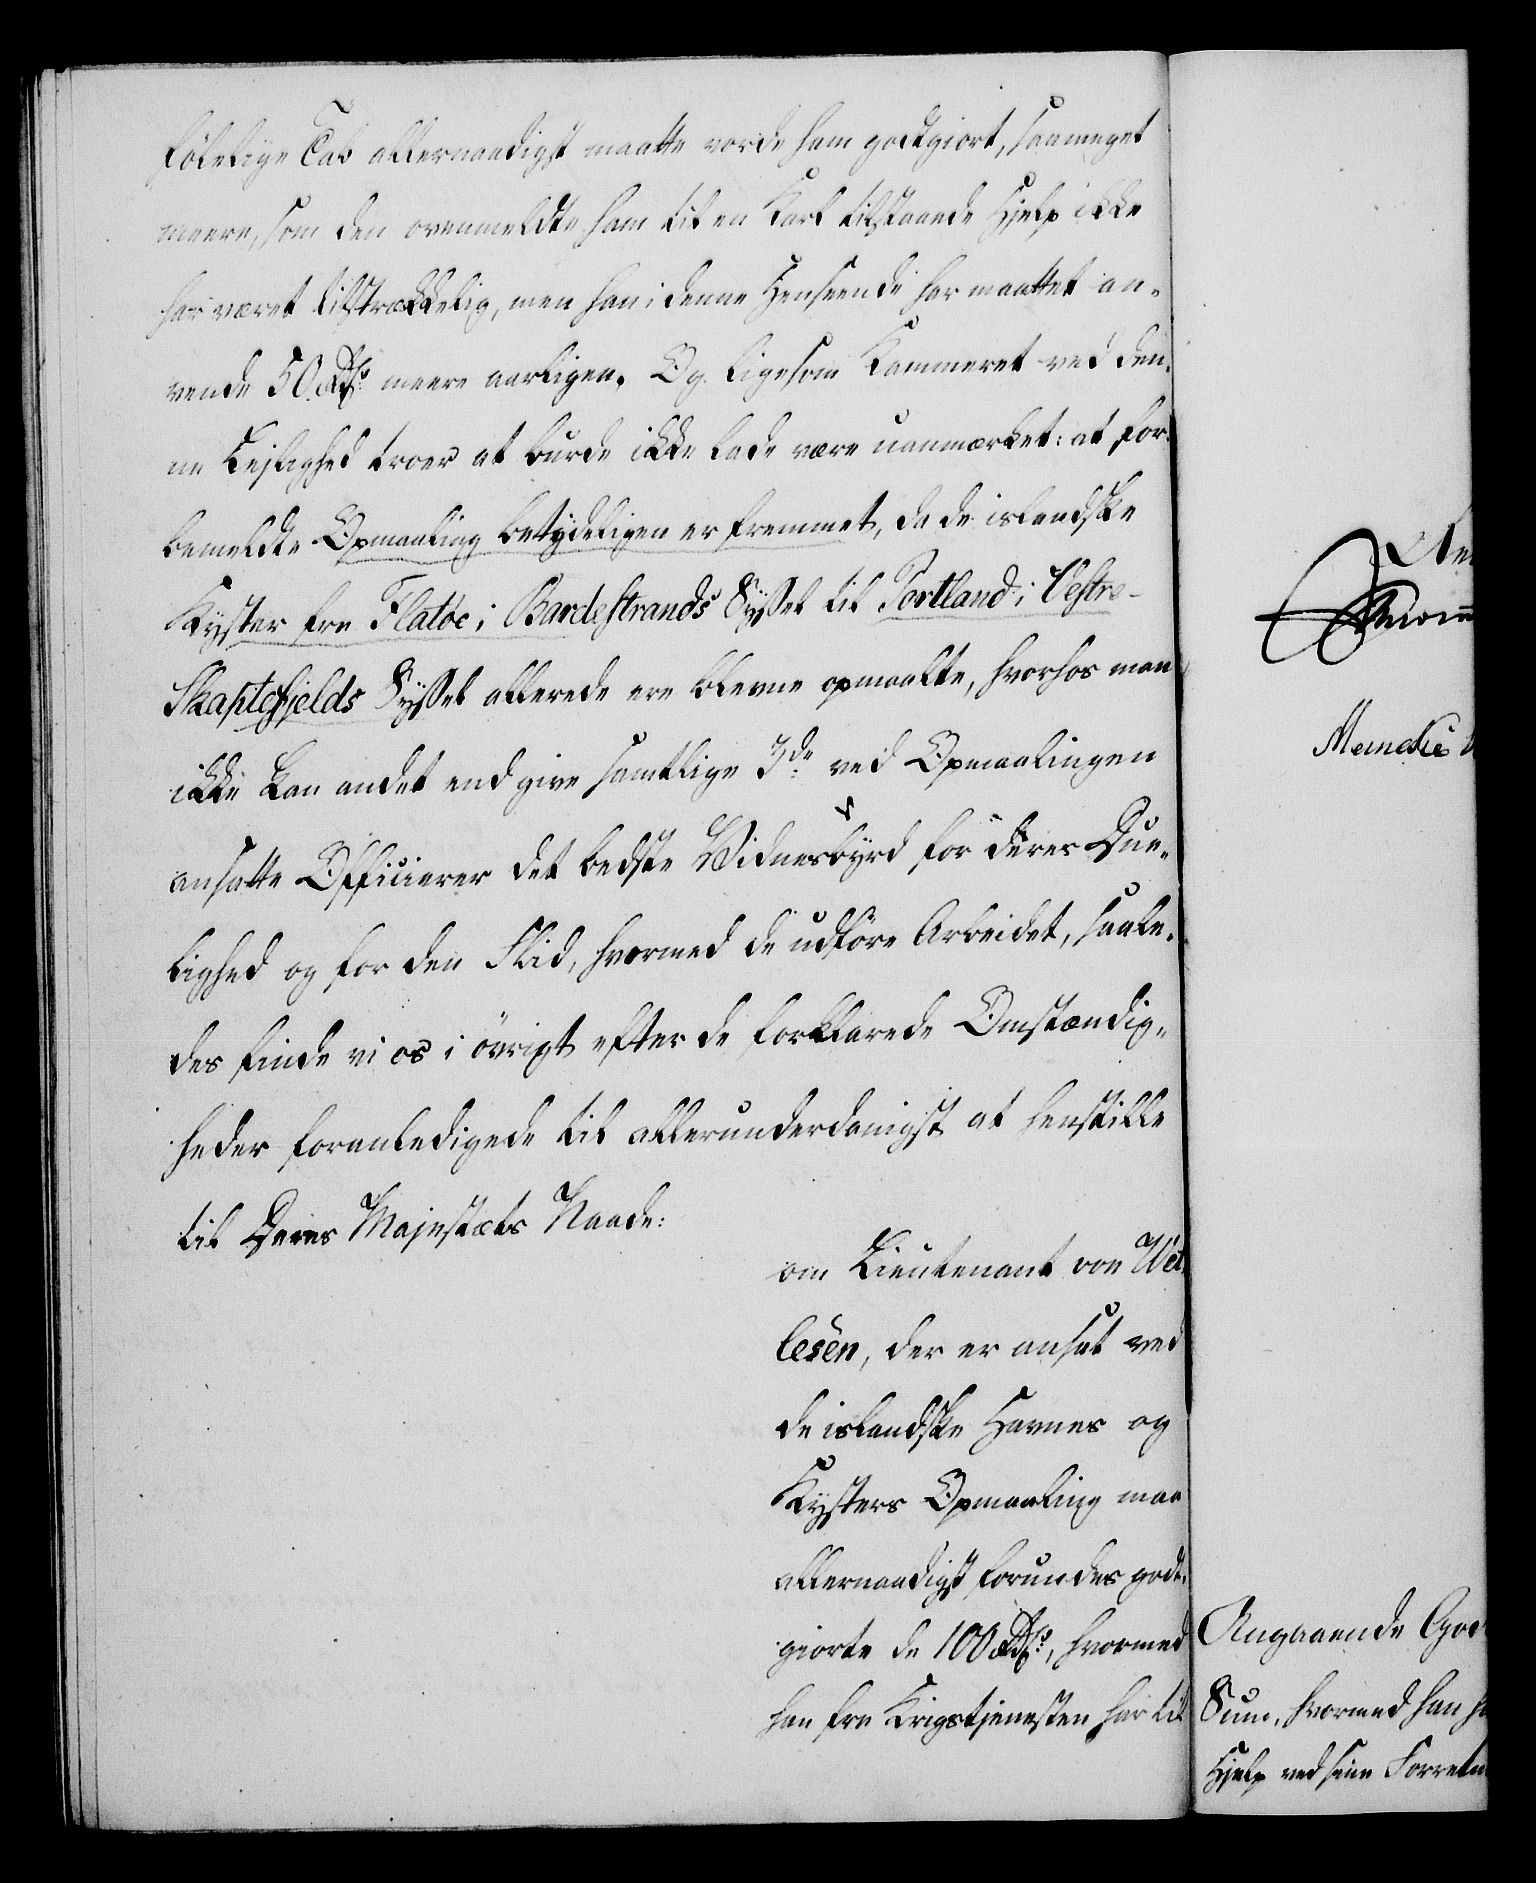 følelige Tab allernaadigst maatte vorde ham godtgiort, saameget
meere, som den ovenmeldte ham til en Karl tilstaaede Hjelp ikke
har været tilstrækkelig, men han i denne Henseende har maattet an-
vende 50 Rd. meere aarligen. Og ligesom Kammeret ved den-
ne Lejlighed troer at burde ikke lade være uanmærket: at for-
bemeldte Opmaaling betydeligen er fremmet, da de islandske
Kyster fra Flatöe i Bardestrands Syssel til Portland i Vestre-
Skaptefjelds Syssel allerede ere blevne opmaalte, hvorhos man
ikke kan andet end give samtlige 3de ved Opmaalingen
ansatte Officierer det bedste Vidnesbyrd for deres Due-
lighed og for den Flid, hvormed de udföre Arbeidet, saale-
des finde vi os i övrigt efter de forklarede Omstændig-
heder foranledigede til allerunderdanigst at henstille
til Deres Majestæts Naade:
om Lieutenant von Wet-
lesen, der er ansat ved
de islandske Havnes og
Kysters Opmaaling maa
allernaadigst forundes godt-
giorte de 100 Rd., hvormed
han fra Krigstjenesten har til
Meincke
Angaaende God
Sum, hvormed han
Hjelp ved sine Forretn